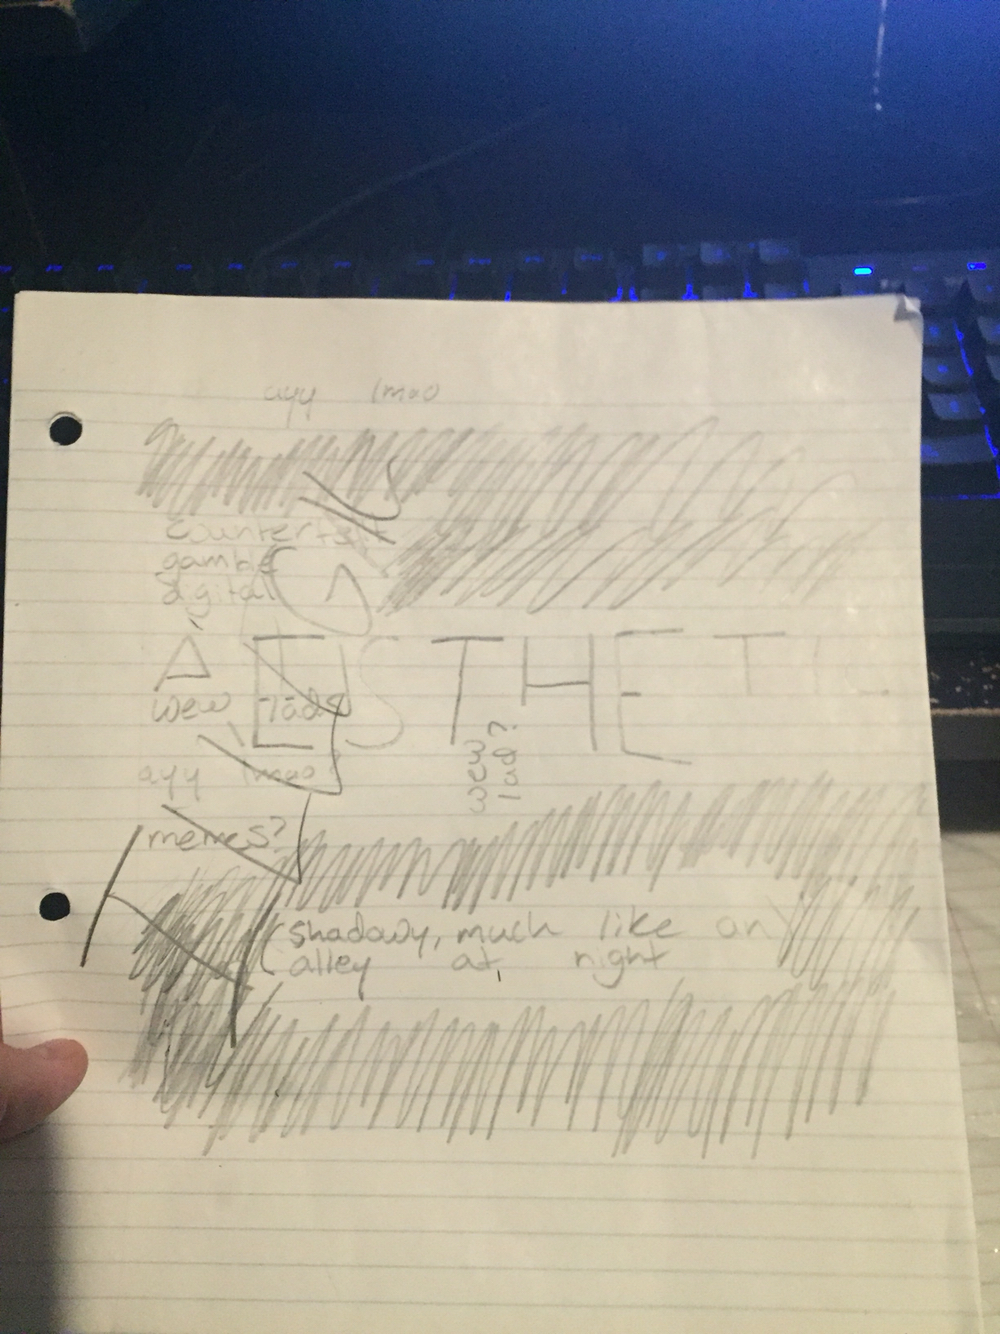 ayy lmao
counterfeit
gambe
digital
A ESTHETIC
wew lads
wew lad?
ayy lmao
memes?
shadowy, much like an
alley at right